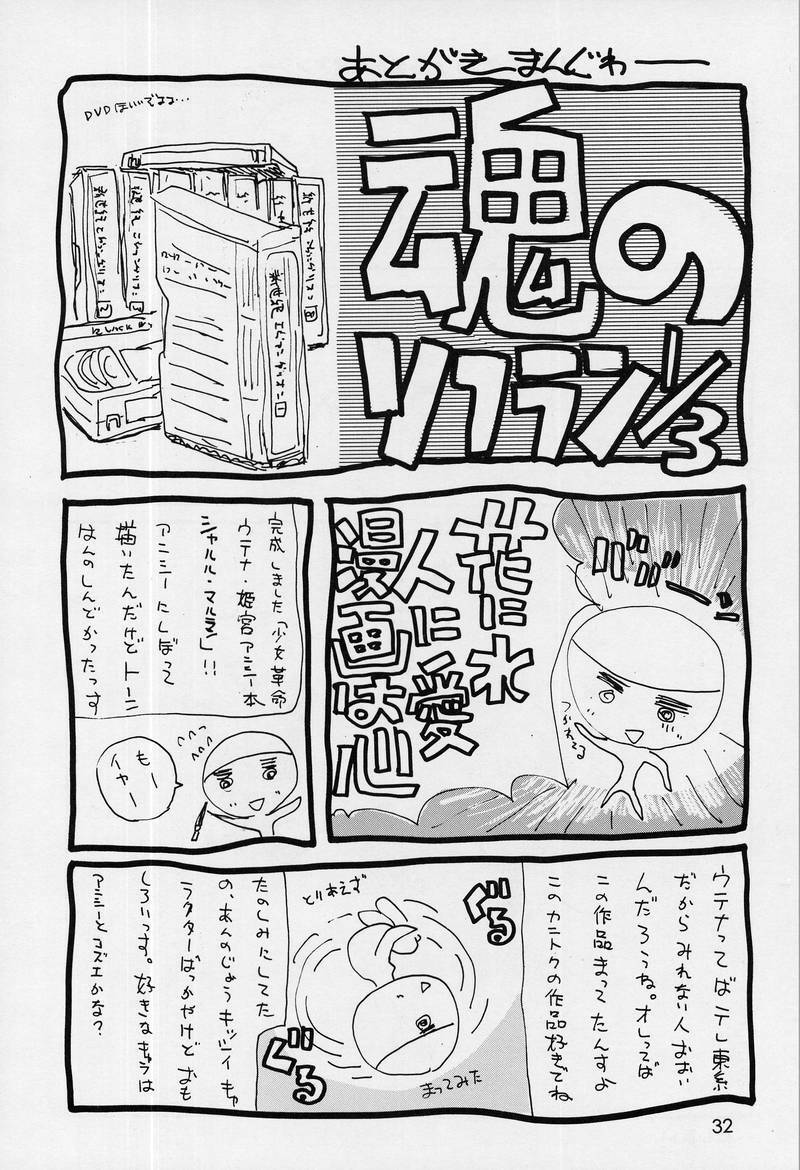 あとがきまんぐわー
魂の
ソフラン1/3
DVDほいでるる…
新世紀エヴァンゲリオン 1
2
3
8
BLACK
花に水
人に愛
漫画は心
バババーン
つかれてる
完成しました「少女革命
ウテナ・姫宮アンシー本
シャルル・マルラン」!!
アンシーにしぼって
描いたんだけどトーン
はんのしんどかったっす
もー
イヤー
ウテナってばテレ東系
だからみれない人おおい
んだろうね。オレってば
この作品まってたんすよ
このカントクの作品好きでね
ぐる
とりあえず
ぐる
まってみた
たのしみにしてた
の、あんのじょうキッツイキャ
ラクターばっかやけどおも
しろいっす。好きなキャラは
アンシーとコズエかな?
32